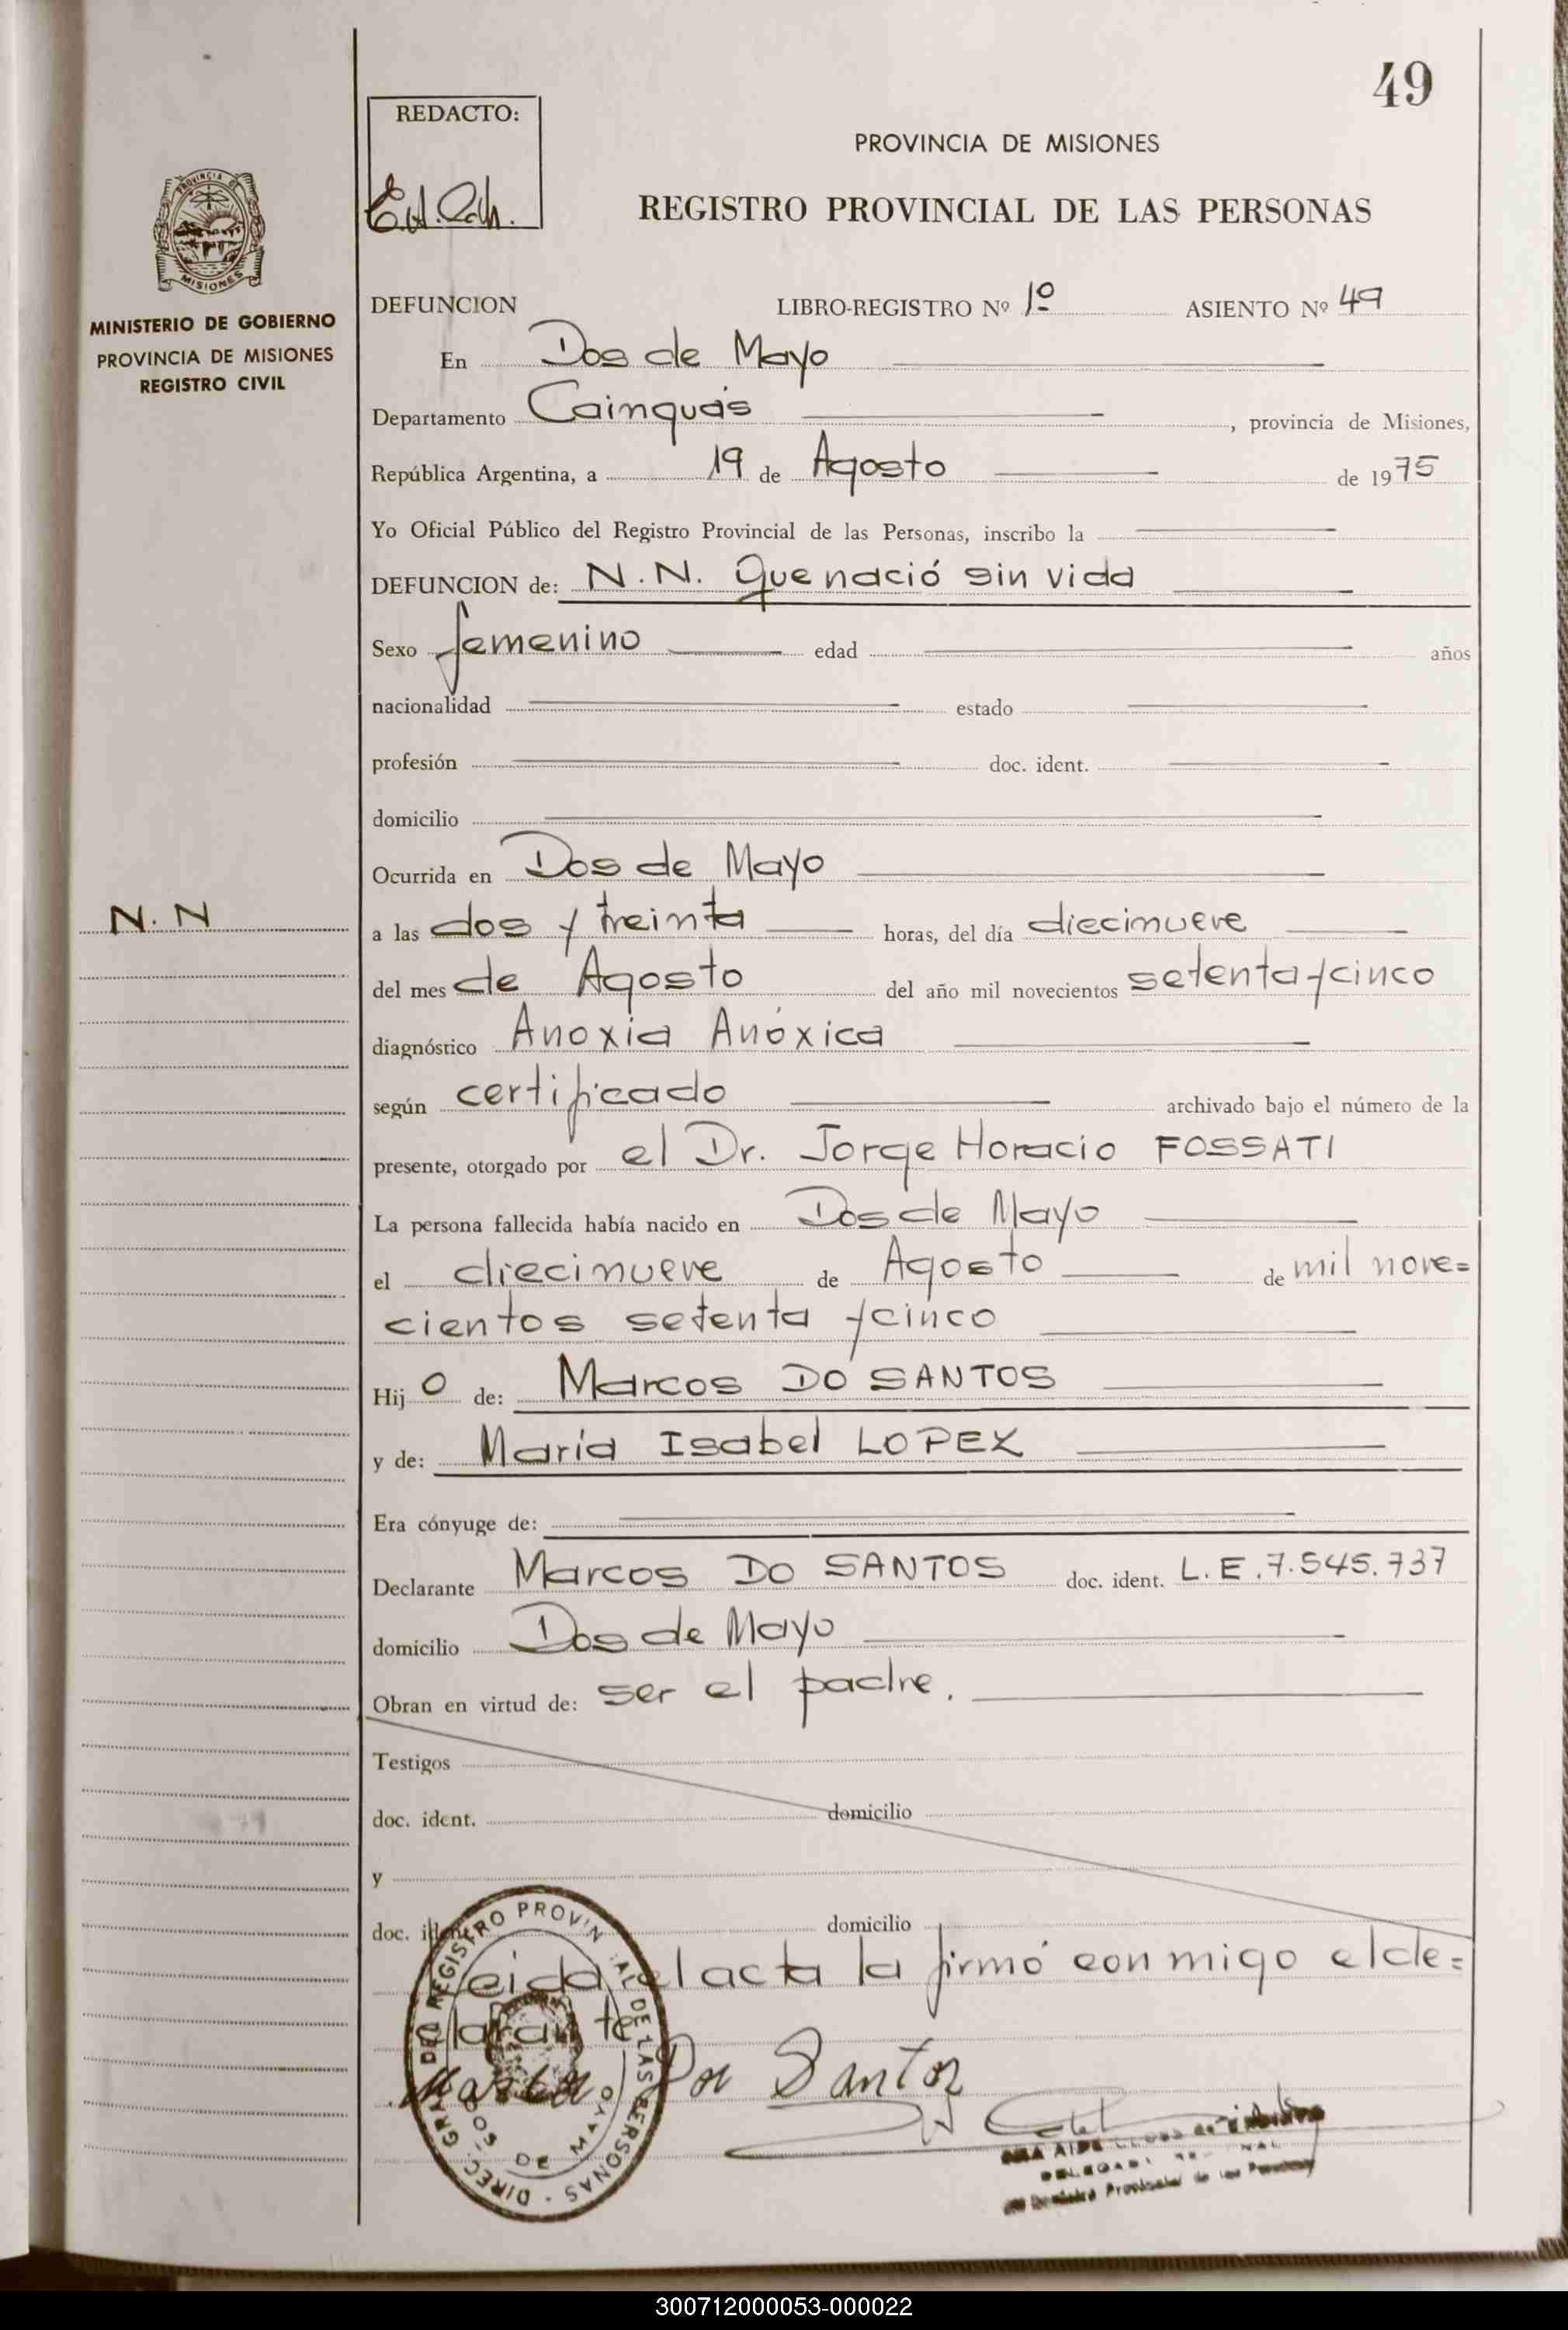 49
REDACTO:
PROVINCIA DE MISIONES
REGISTRO PROVINCIAL DE LAS PERSONAS
MISIONES
MINISTERIO DE GOBIERNO
PROVINCIA DE MISIONES
REGISTRO CIVIL
DEFUNCION LIBRO-REGISTRO Nº 1º ASIENTO Nº 49
En Dos de Mayo
Departamento Cainguás, provincia de Misiones,
República Argentina, a 19 de Agosto de 1975
Yo Oficial Público del Registro Provincial de las Personas, inscribo la
DEFUNCION de: N.N. Que nació sin vida
Sexo femenino edad años
nacionalidad estado
profesión doc. ident.
domicilio
Ocurrida en Dos de Mayo
N.N
a las dos y treinta horas, del día diecinueve
del mes de Agosto del año mil novecientos setenta y cinco
diagnóstico Anoxia Anóxica
según certificado archivado bajo el número de la
presente, otorgado por el Dr. Jorge Horacio FOSSATI
La persona fallecida había nacido en Dos de Mayo
el diecinueve de Agosto de mil nove=
cientos setenta y cinco
Hijo de: Marcos DO SANTOS
y de: María Isabel LOPEZ
Era cónyuge de:
Declarante Marcos DO SANTOS doc. ident. L.E.7.545.737
domicilio Dos de Mayo
Obran en virtud de: ser el padre.
Testigos
doc. ident. domicilio
y
doc. ident. domicilio
Leida el acta la firmó conmigo el de=
clarante
DIREC. GRAL. DEL REGISTRO PROVINCIAL DE LAS PERSONAS
DOS DE MAYO
Santos
300712000053-000022